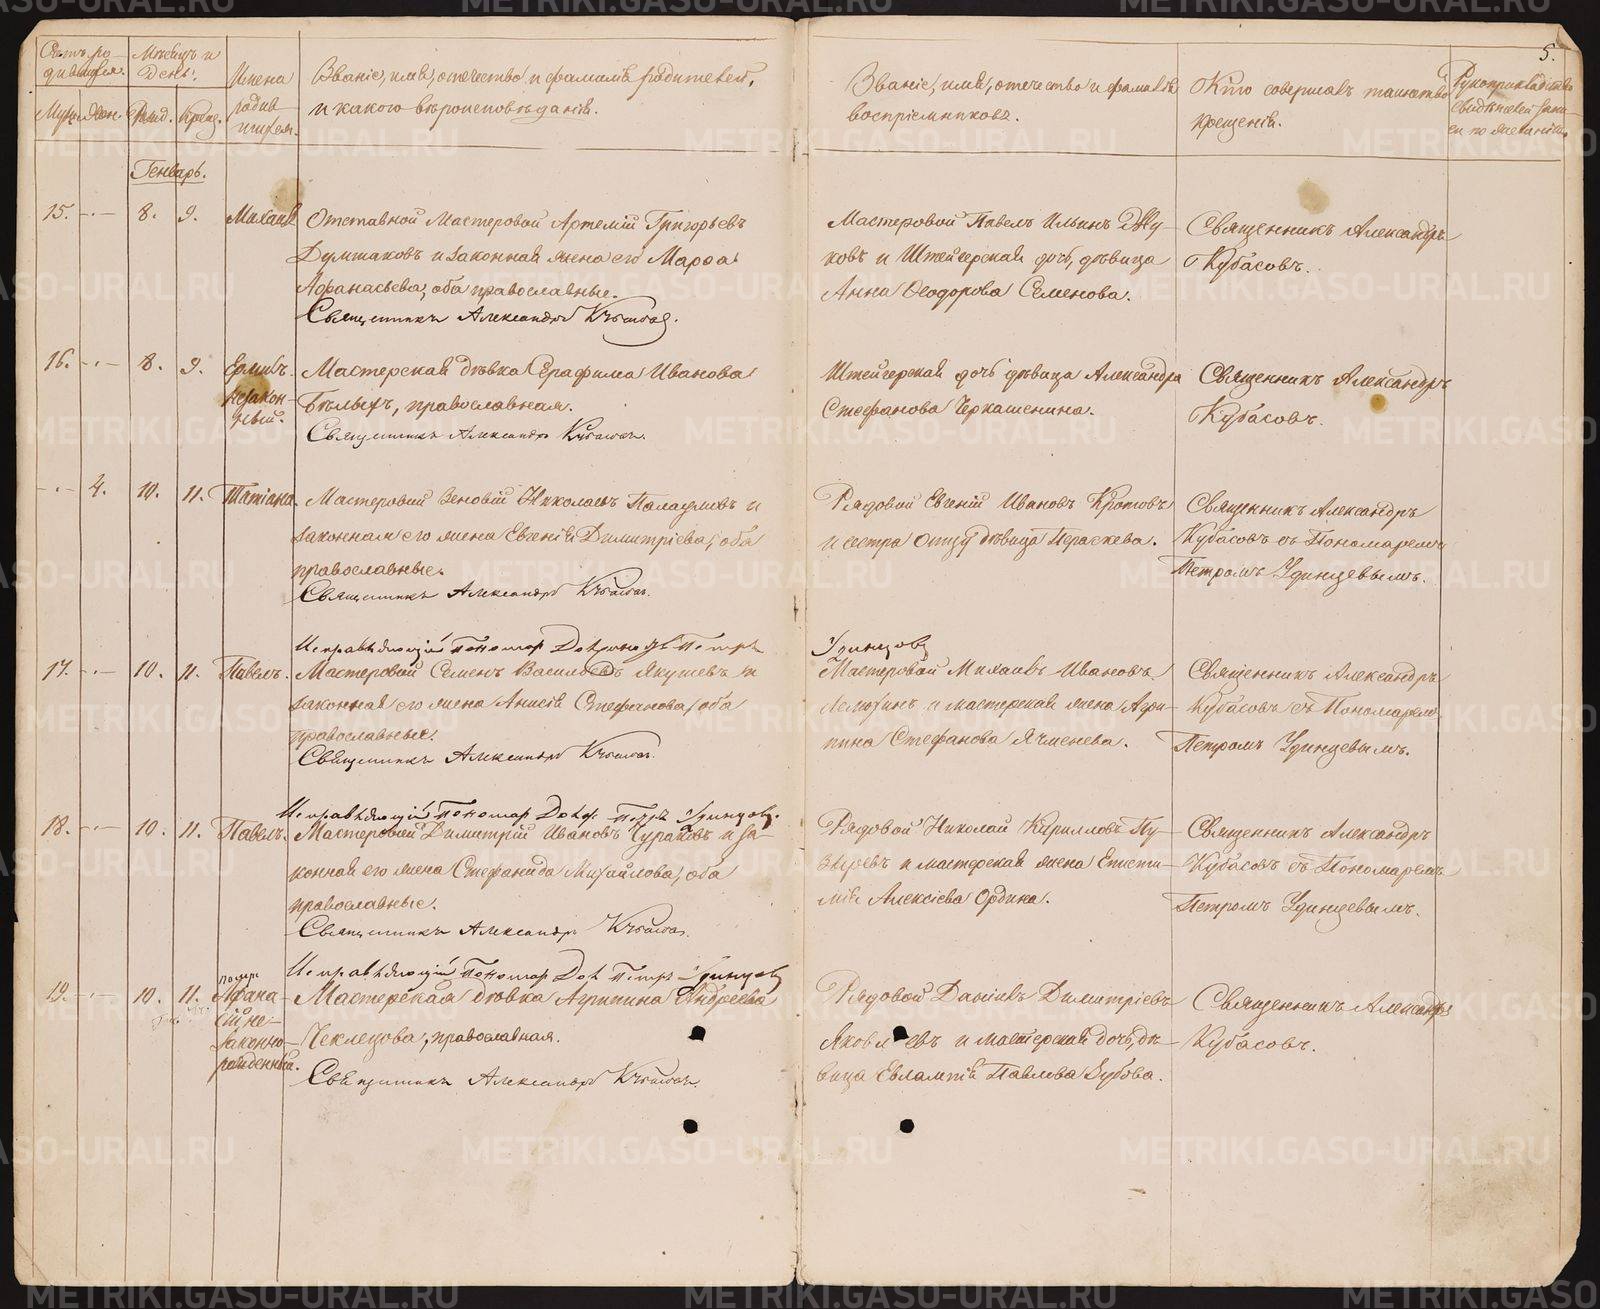 5.
Счетъ ро-
дившихся.
Мѣсяцъ и
День.
Имена
родив-
шихся.
Званіе, имя, отечество и фамилія родителей,
и какого вѣроисповѣданія.
Званіе, имя, отечество и фамилія
воспріемниковъ.
Кто совершалъ таинство
крещенія.
Рукоприкладство
свидѣтелей записи
по желанію.
Муж. Жен. Рожд. Крещ.
Генварь.
15. -·- 8. 9. Михаилъ
Отставной Мастеровой Артемій Григорьевъ
Думшаковъ и законная жена его Марѳа
Аѳанасьева, оба православные.
Священникъ Александръ Кубасовъ.
Мастеровой Павелъ Ильинъ Жу-
ковъ и Штейгерская дочь, дѣвица
Анна Ѳеодорова Семенова.
Священникъ Александръ
Кубасовъ.
16. -·- 8. 9. Ермилъ.
незакон-
ный.
Мастерская дѣвка Серафима Иванова
Бѣлыхъ, православная.
Священникъ Александръ Кубасовъ.
Штейгерская дочь дѣвица Александра
Стефанова Черкашенина.
Священникъ Александръ
Кубасовъ.
-·- 4. 10. 11. Татіана.
Мастеровой Зеновій Николаевъ и
законная его жена Евгенія Димитріева, оба
православные.
Священникъ Александръ Кубасовъ.
Рядовой Евгеній Ивановъ Кротовъ
и сестра отцу дѣвица Параскева.
Священникъ Александръ
Кубасовъ съ Пономаремъ
Петромъ Удинцевымъ.
Исправляющій Пономар Петръ
Удинцовъ
17. -·- 10. 11. Павелъ.
Мастеровой Семенъ Васильевъ Якушевъ и
законная его жена Анисія Стефанова, оба
православные.
Священникъ Александръ Кубасовъ.
Мастеровой Михаилъ Ивановъ
и мастерская жена Агри-
пина Стефанова Ячменева.
Священникъ Александръ
Кубасовъ съ Пономаремъ
Петромъ Удинцевымъ.
Исправляющій Пономар Петръ Удинцовъ.
18. -·- 10. 11. Павелъ.
Мастеровой Димитрій Ивановъ Чураковъ и за-
конная его жена Стефанида Михайлова, оба
православные.
Священникъ Александръ Кубасовъ.
Рядовой Николай Кирилловъ Пу-
зыревъ и мастерская жена Еписти-
мія Алексіева Ордина.
Священникъ Александръ
Кубасовъ съ Пономаремъ
Петромъ Удинцевымъ.
Исправляющій Пономар Петръ Удинцовъ
19. -·- 10. 11. Аѳана-
сій не-
законно-
рожденный.
Мастерская дѣвка Агрипина Андреева
Чеклецова, православная.
Священникъ Александръ Кубасовъ.
Рядовой Даніилъ Димитріевъ
Яковлевъ и мастерская дочь, дѣ-
вица Евлампія Павлова Зубова.
Священникъ Александръ
Кубасовъ.
METRIKI.GASO-URAL.RU